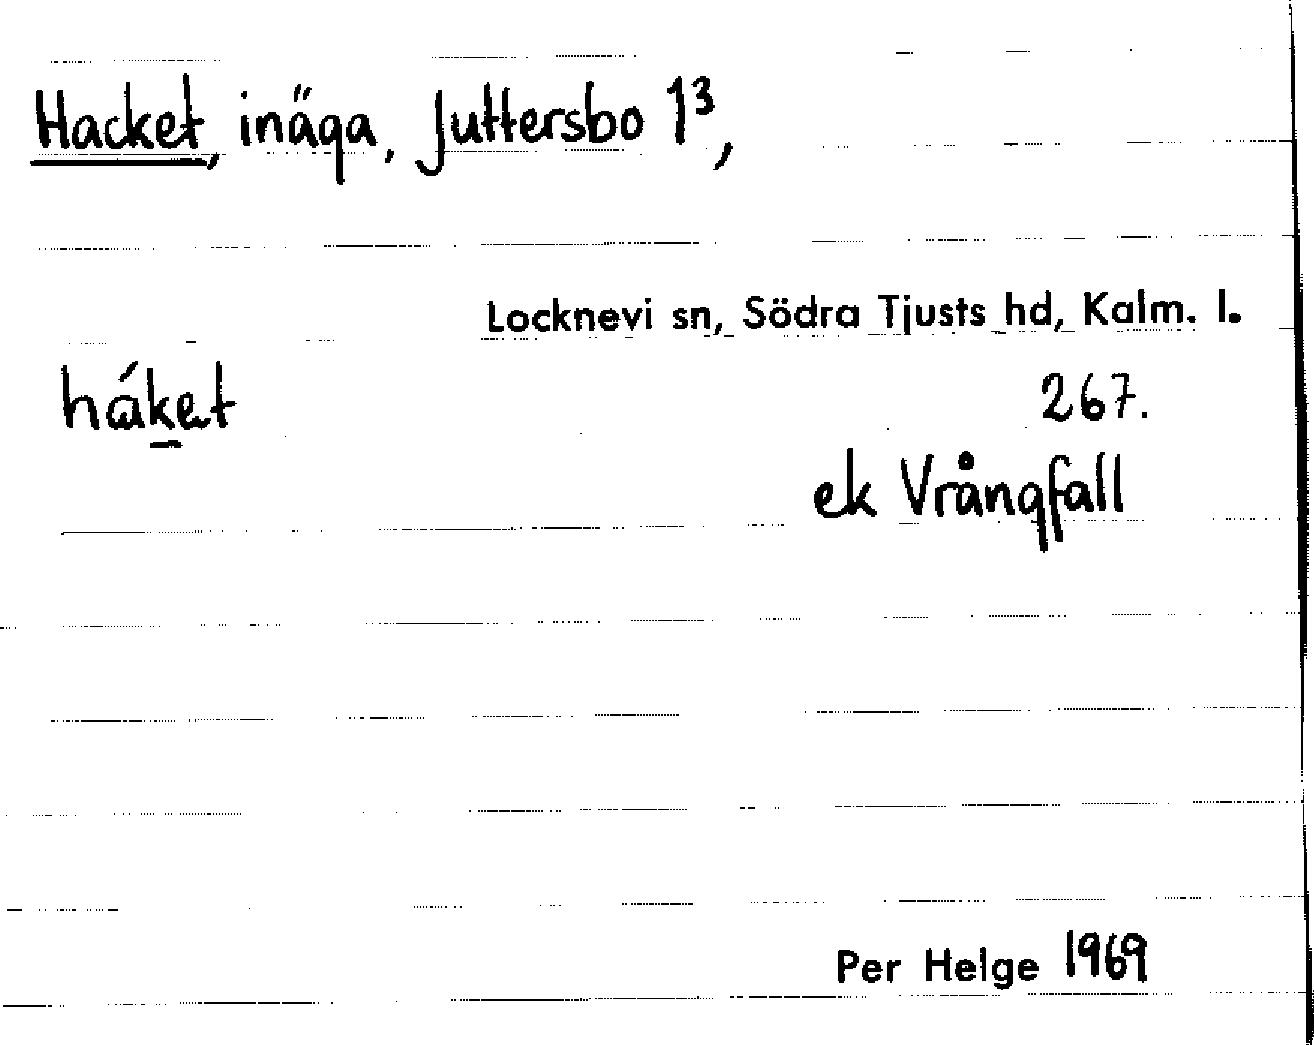 Hacket, inäga, Juttersbo 1³,
Locknevi sn, Södra Tjusts hd, Kalm. l.
háket 267.
ek Vrångfall
Per Helge 1969